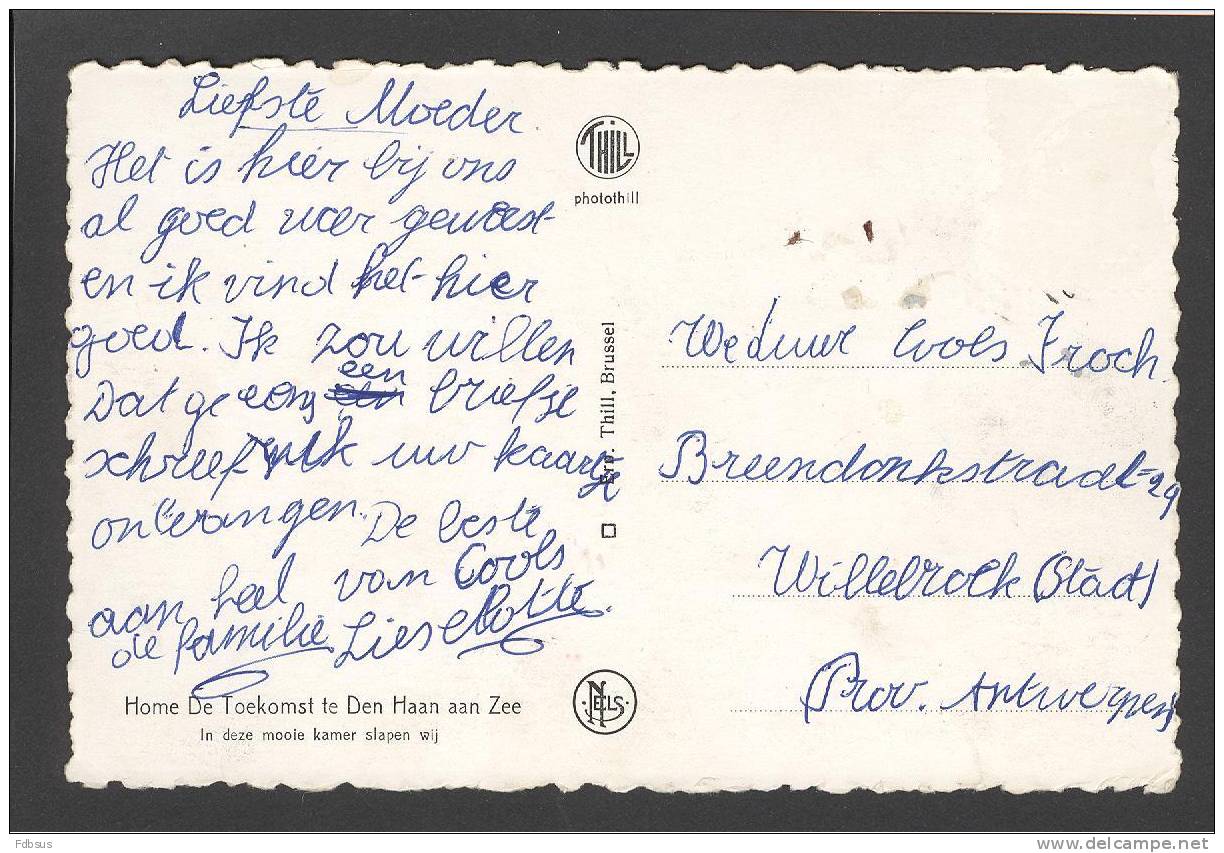 Liefste Moeder.
Het is hier bij ons
al goed weer geweest
en ik vind het hier
goed. Ik zou willen
Dat ge eens een briefje
schreef ik uw kaartje
ontvangen. De beste
aan heel van Cools
de familie Lieselotte.
Home De Toekomst te Den Haan aan Zee
In deze mooie kamer slapen wij
THILL
photothill
Ern. Thill, Brussel
NELS
Weduwe Cools
Breendonkstraat-29
Willebroek (Stad)
(Prov. Antwerpen)
Fdbsus
www.delcampe.net